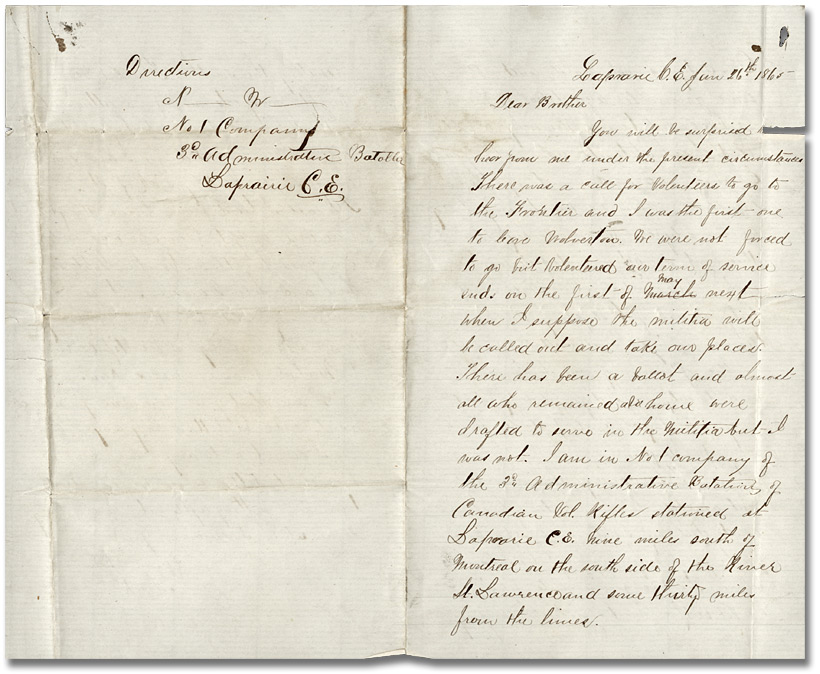 Directions
N W
No 1 Company
3d Administrative Batalln
Laprairie C.E.
Laprarie C.E. Jan 26th 1865
Dear Brother
You will be surprised to
hear from me under the present circumstances
There was a call for Volenteers to go to
the Frontier and I was the first one
to leave Wolverton. We were not forced
to go but Volenteered our term of service
ends on the first of March May next
when I suppose the militia will
be called out and take our places.
There has been a ballot and almost
all who remained at home were
drafted to serve in the Militia but I
was not. I am in No 1 company of
the 3d Administrative Batalion of
Canadian Vol. Rifles stationed at
Laprarie C.E. nine miles south of
Montreal on the south side of the River
St. Lawrence and some thirty miles
from the lines.